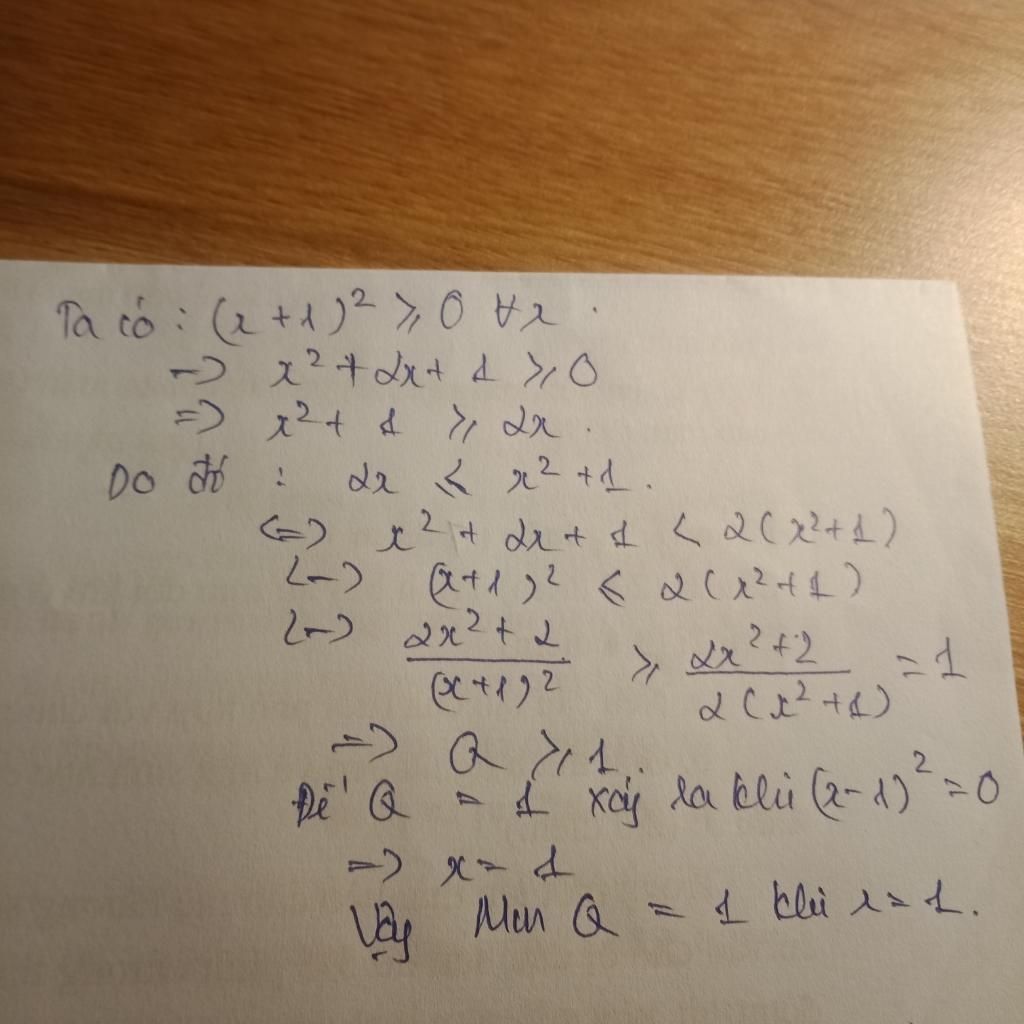 Ta có : (x + 1)² ⩾ 0 ∀x .
→ x² + 2x + 1 ⩾ 0
⇒ x² + 1 ⩾ 2x .
Do đó : 2x ⩽ x² + 1 .
⇔ x² + 2x + 1 < 2(x² + 1)
⇔ (x+1)² ⩽ 2(x² + 1)
⇔ (2x² + 2)/(x+1)² ⩾ (2x² + 2)/(2(x² + 1)) = 1
⇒ Q ⩾ 1 .
Để Q = 1 xảy ra khi (x - 1)² = 0
⇒ x = 1
Vậy Min Q = 1 khi x = 1.